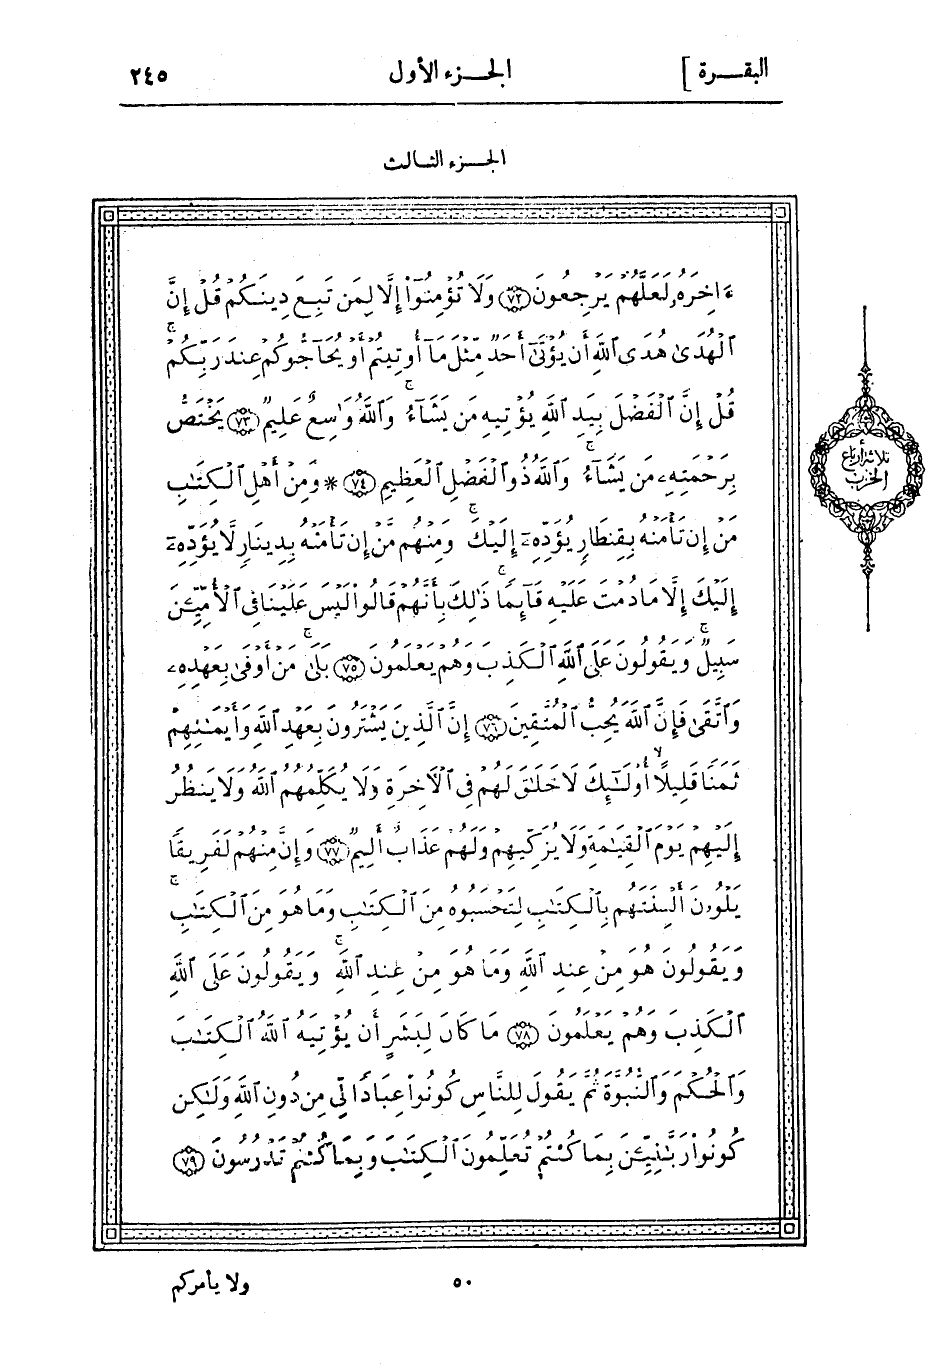 البقرة ]
الجزء الأول
٢٤٥
الجزء الثالث
ءَاخِرَهُۥ لَعَلَّهُمْ يَرْجِعُونَ ﴿٧٢﴾ وَلَا تُؤْمِنُوٓا۟ إِلَّا لِمَن تَبِعَ دِينَكُمْ قُلْ إِنَّ
ٱلْهُدَىٰ هُدَى ٱللَّهِ أَن يُؤْتَىٰٓ أَحَدٌ مِّثْلَ مَآ أُوتِيتُمْ أَوْ يُحَآجُّوكُمْ عِندَ رَبِّكُمْ ۗ
قُلْ إِنَّ ٱلْفَضْلَ بِيَدِ ٱللَّهِ يُؤْتِيهِ مَن يَشَآءُ ۗ وَٱللَّهُ وَٰسِعٌ عَلِيمٌ ﴿٧٣﴾ يَخْتَصُّ
بِرَحْمَتِهِۦ مَن يَشَآءُ ۗ وَٱللَّهُ ذُو ٱلْفَضْلِ ٱلْعَظِيمِ ﴿٧٤﴾ * وَمِنْ أَهْلِ ٱلْكِتَٰبِ
مَنْ إِن تَأْمَنْهُ بِقِنطَارٍ يُؤَدِّهِۦٓ إِلَيْكَ ۚ وَمِنْهُم مَّنْ إِن تَأْمَنْهُ بِدِينَارٍ لَّا يُؤَدِّهِۦٓ
إِلَيْكَ إِلَّا مَا دُمْتَ عَلَيْهِ قَآئِمًا ۚ ذَٰلِكَ بِأَنَّهُمْ قَالُوا۟ لَيْسَ عَلَيْنَا فِى ٱلْأُمِّيِّـۧنَ
سَبِيلٌ ۚ وَيَقُولُونَ عَلَى ٱللَّهِ ٱلْكَذِبَ وَهُمْ يَعْلَمُونَ ﴿٧٥﴾ بَلَىٰ ۚ مَنْ أَوْفَىٰ بِعَهْدِهِۦ
وَٱتَّقَىٰ فَإِنَّ ٱللَّهَ يُحِبُّ ٱلْمُتَّقِينَ ﴿٧٦﴾ إِنَّ ٱلَّذِينَ يَشْتَرُونَ بِعَهْدِ ٱللَّهِ وَأَيْمَٰنِهِمْ
ثَمَنًا قَلِيلًا ۙ أُو۟لَٰٓئِكَ لَا خَلَٰقَ لَهُمْ فِى ٱلْءَاخِرَةِ وَلَا يُكَلِّمُهُمُ ٱللَّهُ وَلَا يَنظُرُ
إِلَيْهِمْ يَوْمَ ٱلْقِيَٰمَةِ وَلَا يُزَكِّيهِمْ وَلَهُمْ عَذَابٌ أَلِيمٌ ﴿٧٧﴾ وَإِنَّ مِنْهُمْ لَفَرِيقًا
يَلْوُۥنَ أَلْسِنَتَهُم بِٱلْكِتَٰبِ لِتَحْسَبُوهُ مِنَ ٱلْكِتَٰبِ وَمَا هُوَ مِنَ ٱلْكِتَٰبِ ۚ
وَيَقُولُونَ هُوَ مِنْ عِندِ ٱللَّهِ وَمَا هُوَ مِنْ عِندِ ٱللَّهِ ۚ وَيَقُولُونَ عَلَى ٱللَّهِ
ٱلْكَذِبَ وَهُمْ يَعْلَمُونَ ﴿٧٨﴾ مَا كَانَ لِبَشَرٍ أَن يُؤْتِيَهُ ٱللَّهُ ٱلْكِتَٰبَ
وَٱلْحُكْمَ وَٱلنُّبُوَّةَ ثُمَّ يَقُولَ لِلنَّاسِ كُونُوا۟ عِبَادًا لِّى مِن دُونِ ٱللَّهِ وَلَٰكِن
كُونُوا۟ رَبَّٰنِيِّـۧنَ بِمَا كُنتُمْ تُعَلِّمُونَ ٱلْكِتَٰبَ وَبِمَا كُنتُمْ تَدْرُسُونَ ﴿٧٩﴾
ثلاثة أرباع
الحزب
٥٠
ولا يأمركم